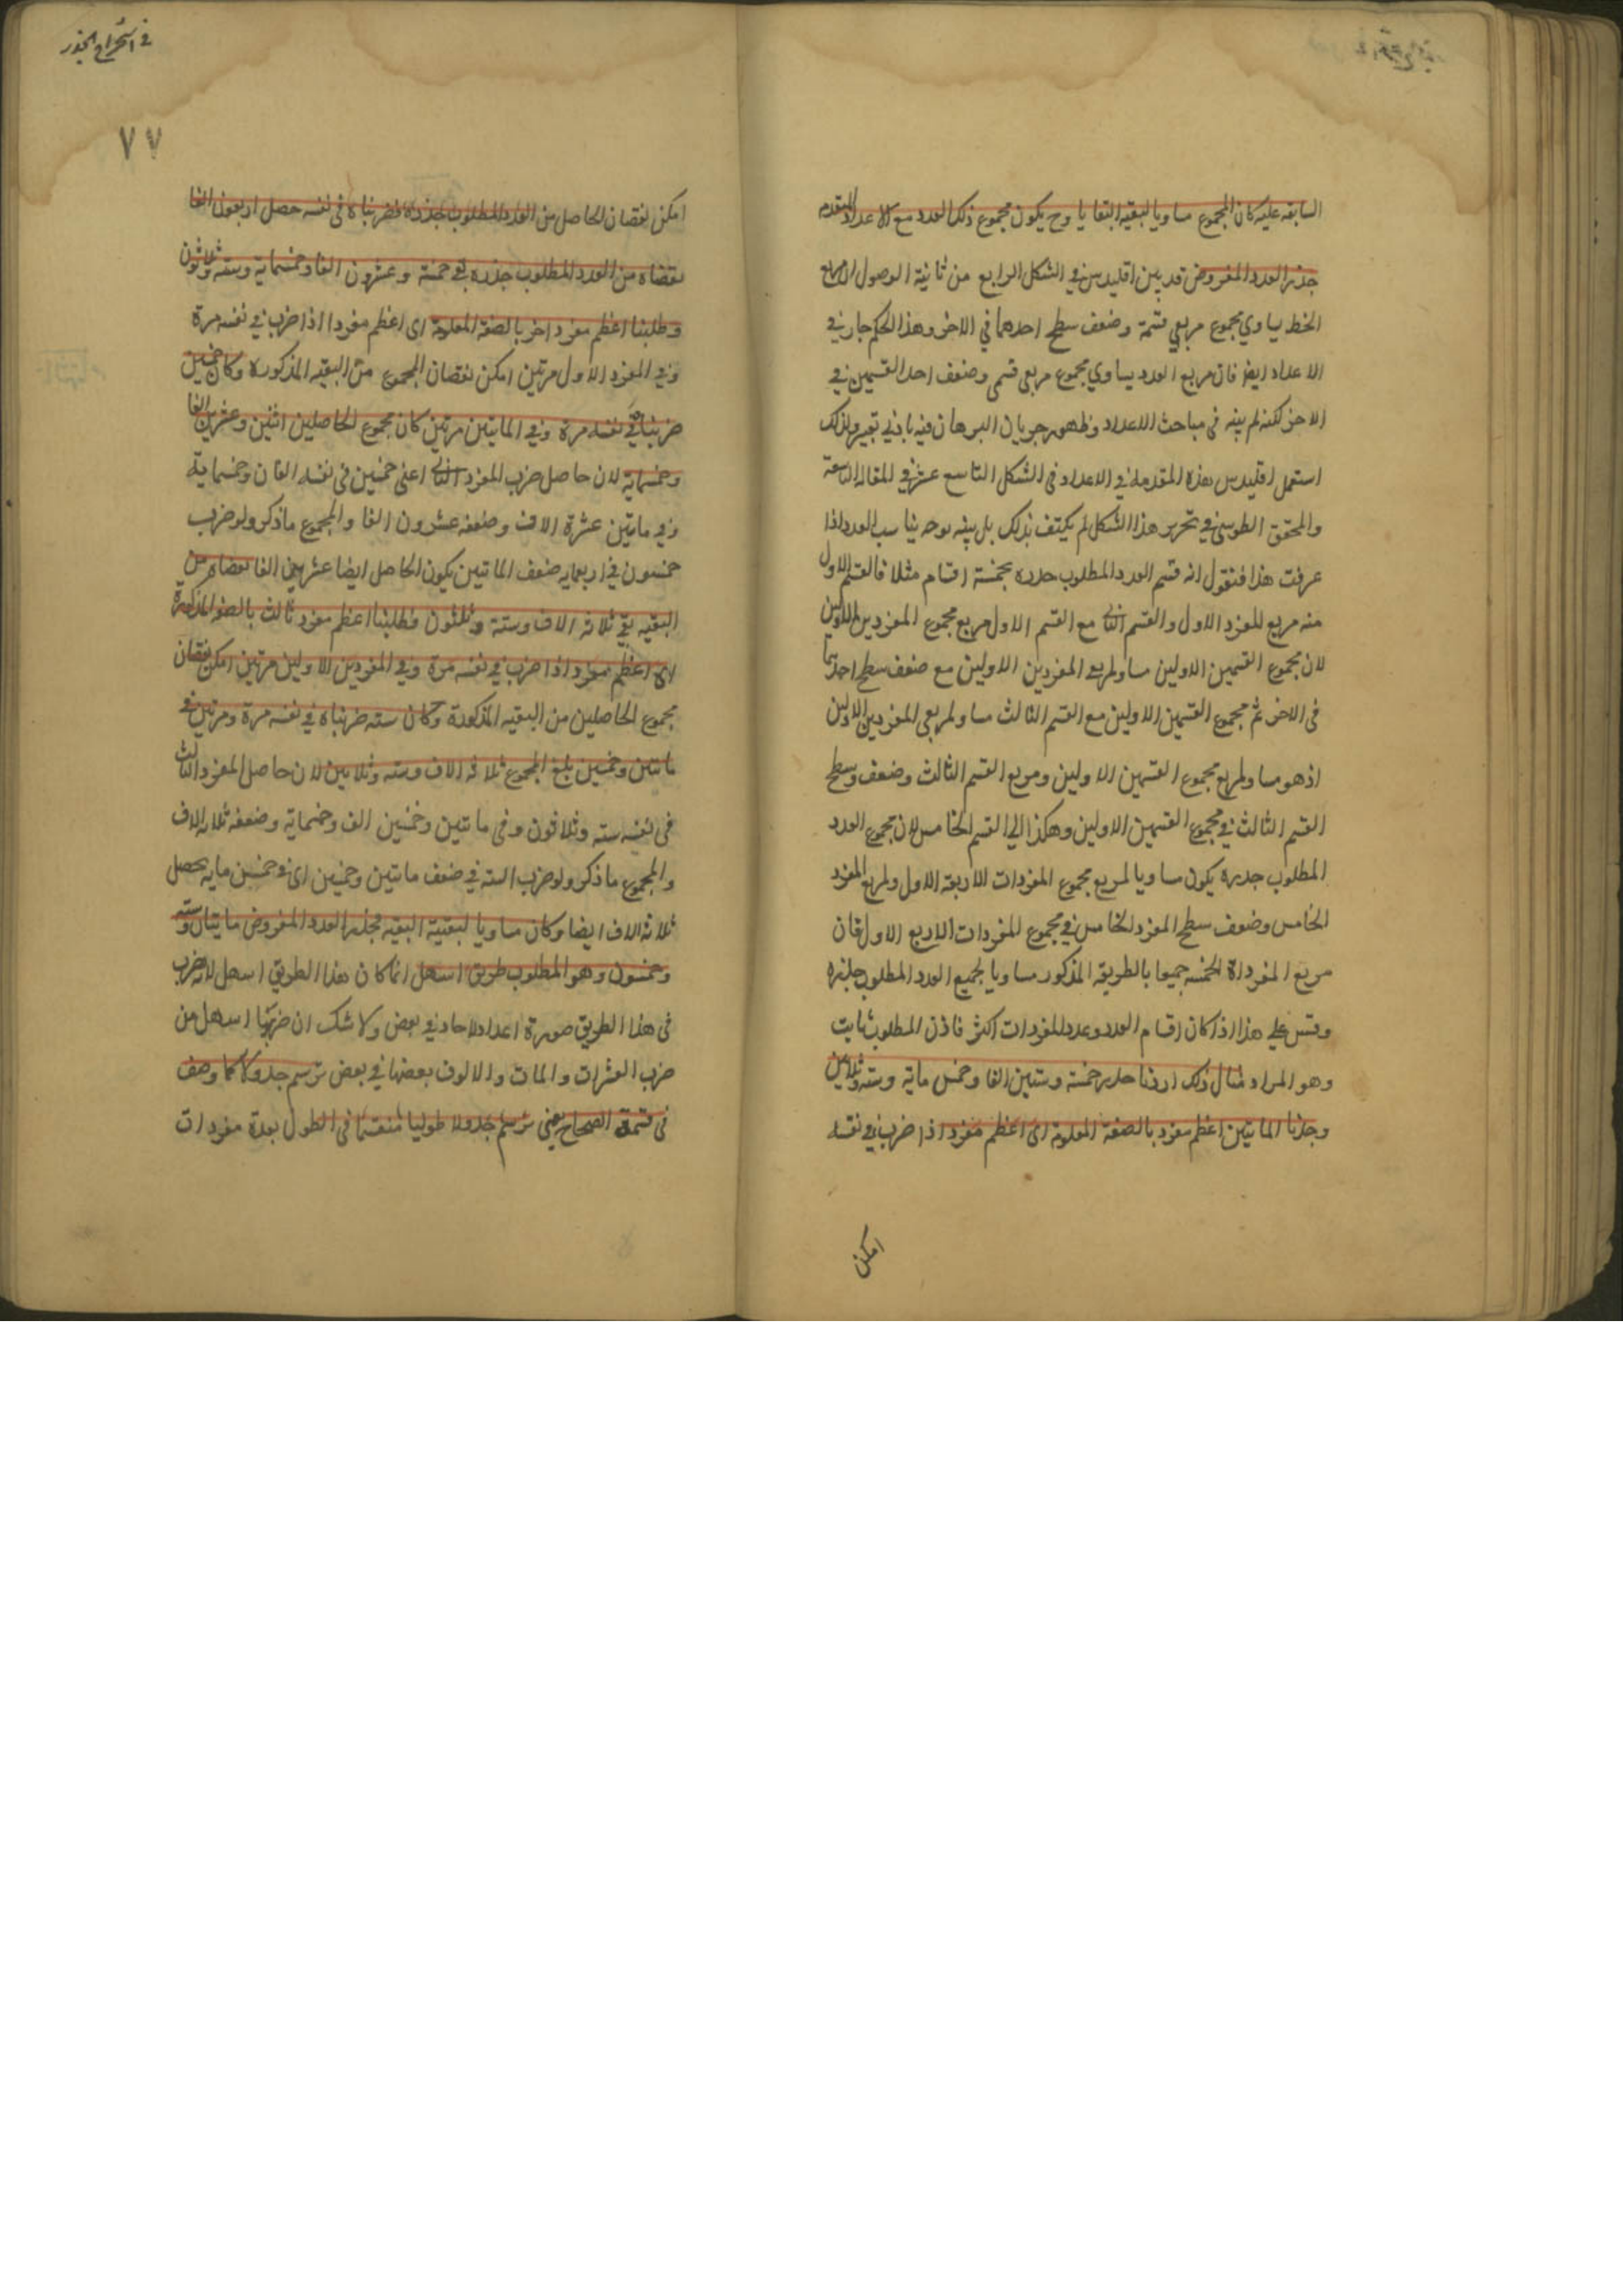 السابقه عليه كان المجموع مساويا لبقيه البقايا وح يكون مجموع ذلك العدد مع الاعداد المتقدمه
جذر العدد المفروض قد بين اقليدس في الشكل الرابع من ثانية الاصول ان مربع
الخط يساوي مجموع مربعي قسمة وضعف سطح احدهما في الاخر وهذا الحكم جار في
الاعداد ايضا فان مربع العدد يساوي مجموع مربعي قسمى وضعف احد القسمين في
الاخر لكنه لم يبنه في مباحث الاعداد وظهور جريان البرهان فيه بادني تغيير ولذلك
استعمل اقليدس هذه المقدمة في الاعداد في الشكل التاسع عشر في المقاله التاسعة
والمحقق الطوسي في تحرير هذا الشكل لم يكتف بذلك بل بينه بوجه يناسب العدد اذا
عرفت هذا فنقول انه قسم العدد المطلوب جذره بخمسة اقسام مثلا فالقسم الاول
منه مربع للمفرد الاول والقسم الثاني مع القسم الاول مربع مجموع المفردين الاولين
لان مجموع القسمين الاولين مساو لمربعي المفردين الاولين مع ضعف سطح احدهما
في الاخر ثم مجموع القسمين الاولين مع القسم الثالث مساو لمربعي المفردين الاولين
اذ هو مساو لمربع مجموع القسمين الاولين ومربع القسم الثالث وضعف وسطح
القسم الثالث في مجموع القسمين الاولين وهكذا الي القسم الخامس لان مجموع العدد
المطلوب جذره يكون مساويا لمربع مجموع المفردات الاربعة الاول ولمربع المفرد
الخامس وضعف سطح المفرد الخامس في مجموع المفردات الاربع الاول فان
مربع المفرداة الخمسه جميعا بالطريقه المذكور مساويا لجميع العدد المطلوب جذره
وقس علي هذا اذا كان اقسام العدد وعدد المفردات اكثر فاذن المطلوب ثابت
وهو المراد مثال ذلك اردنا جذر خمسة وستين الفا وخمس ماية وسته وثلاثين
وجدنا الماتيتين اعظم مفرد بالصفة المعلومة اى اعظم مفرد اذا ضرب في نفسه
امكن
في استخراج الجذر
٧٧
امكن نقصان الحاصل من العدد المطلوب جذره فضربناه في نفسه حصل اربعون الفا
نقصناه من العدد المطلوب جذره بقي خمسة وعشرون الفا وخمسماية وسته وثلاثون
وطلبنا اعظم مفرد اخر بالصفة المعلومة اى اعظم مفردا اذا ضرب في نفسه مرة
وفي المفرد الاول مرتين امكن نقصان المجموع من البقيه المذكورة وكان خمسين
ضربناه في نفسه مرة وفي الماتيتين مرتين كان مجموع الحاصلين اثنين وعشرين الفا
وخمسماية لان حاصل ضرب المفرد الثاني اعنى خمسين في نفسه الفان وخمسماية
وفي مايتين عشرة الاف وضعفه عشرون الفا والمجموع ما ذكر ولو ضرب
خمسون في اربعمايه ضعف الماتيتين يكون الحاصل ايضا عشرين الفا نقصناه من
البقيه بقي ثلاثه الاف وستة وثلثون فطلبنا اعظم مفرد ثالث بالصفه المذكورة
اى اعظم مفرد اذا ضرب في نفسه مرة وفي المفردين الاولين مرتين امكن نقصان
مجموع الحاصلين من البقيه المذكورة وكان سته ضربناه في نفسه مرة ومرتين في
مايتين وخمسين بلغ المجموع ثلاثه الاف وسته وثلاثين لان حاصل المفرد الثالث
في نفسه سته وثلاثون وفي مايتين وخمسين الف وخمسماية وضعفه ثلاثه الاف
والمجموع ما ذكر ولو ضرب السته في ضعف مايتين وخمسين اى في خمسين ماية يحصل
ثلاثه الاف ايضا وكان مساويا لبقيية البقيه فجذر العدد المفروض مايتان وسته
وخمسون وهو المطلوب طريق اسهل انما كان هذا الطريق اسهل لانه ضرب
في هذا الطريق صورة اعداد الاحاد في بعض ولا شك ان ضربها اسهل من
ضرب العشرات والمات والالوف بعضها في بعض نرسم جدولا كما وصف
في قسمة الصحاح يعني نرسم جدولا طوليا منقسما في الطول بعدة مفردات